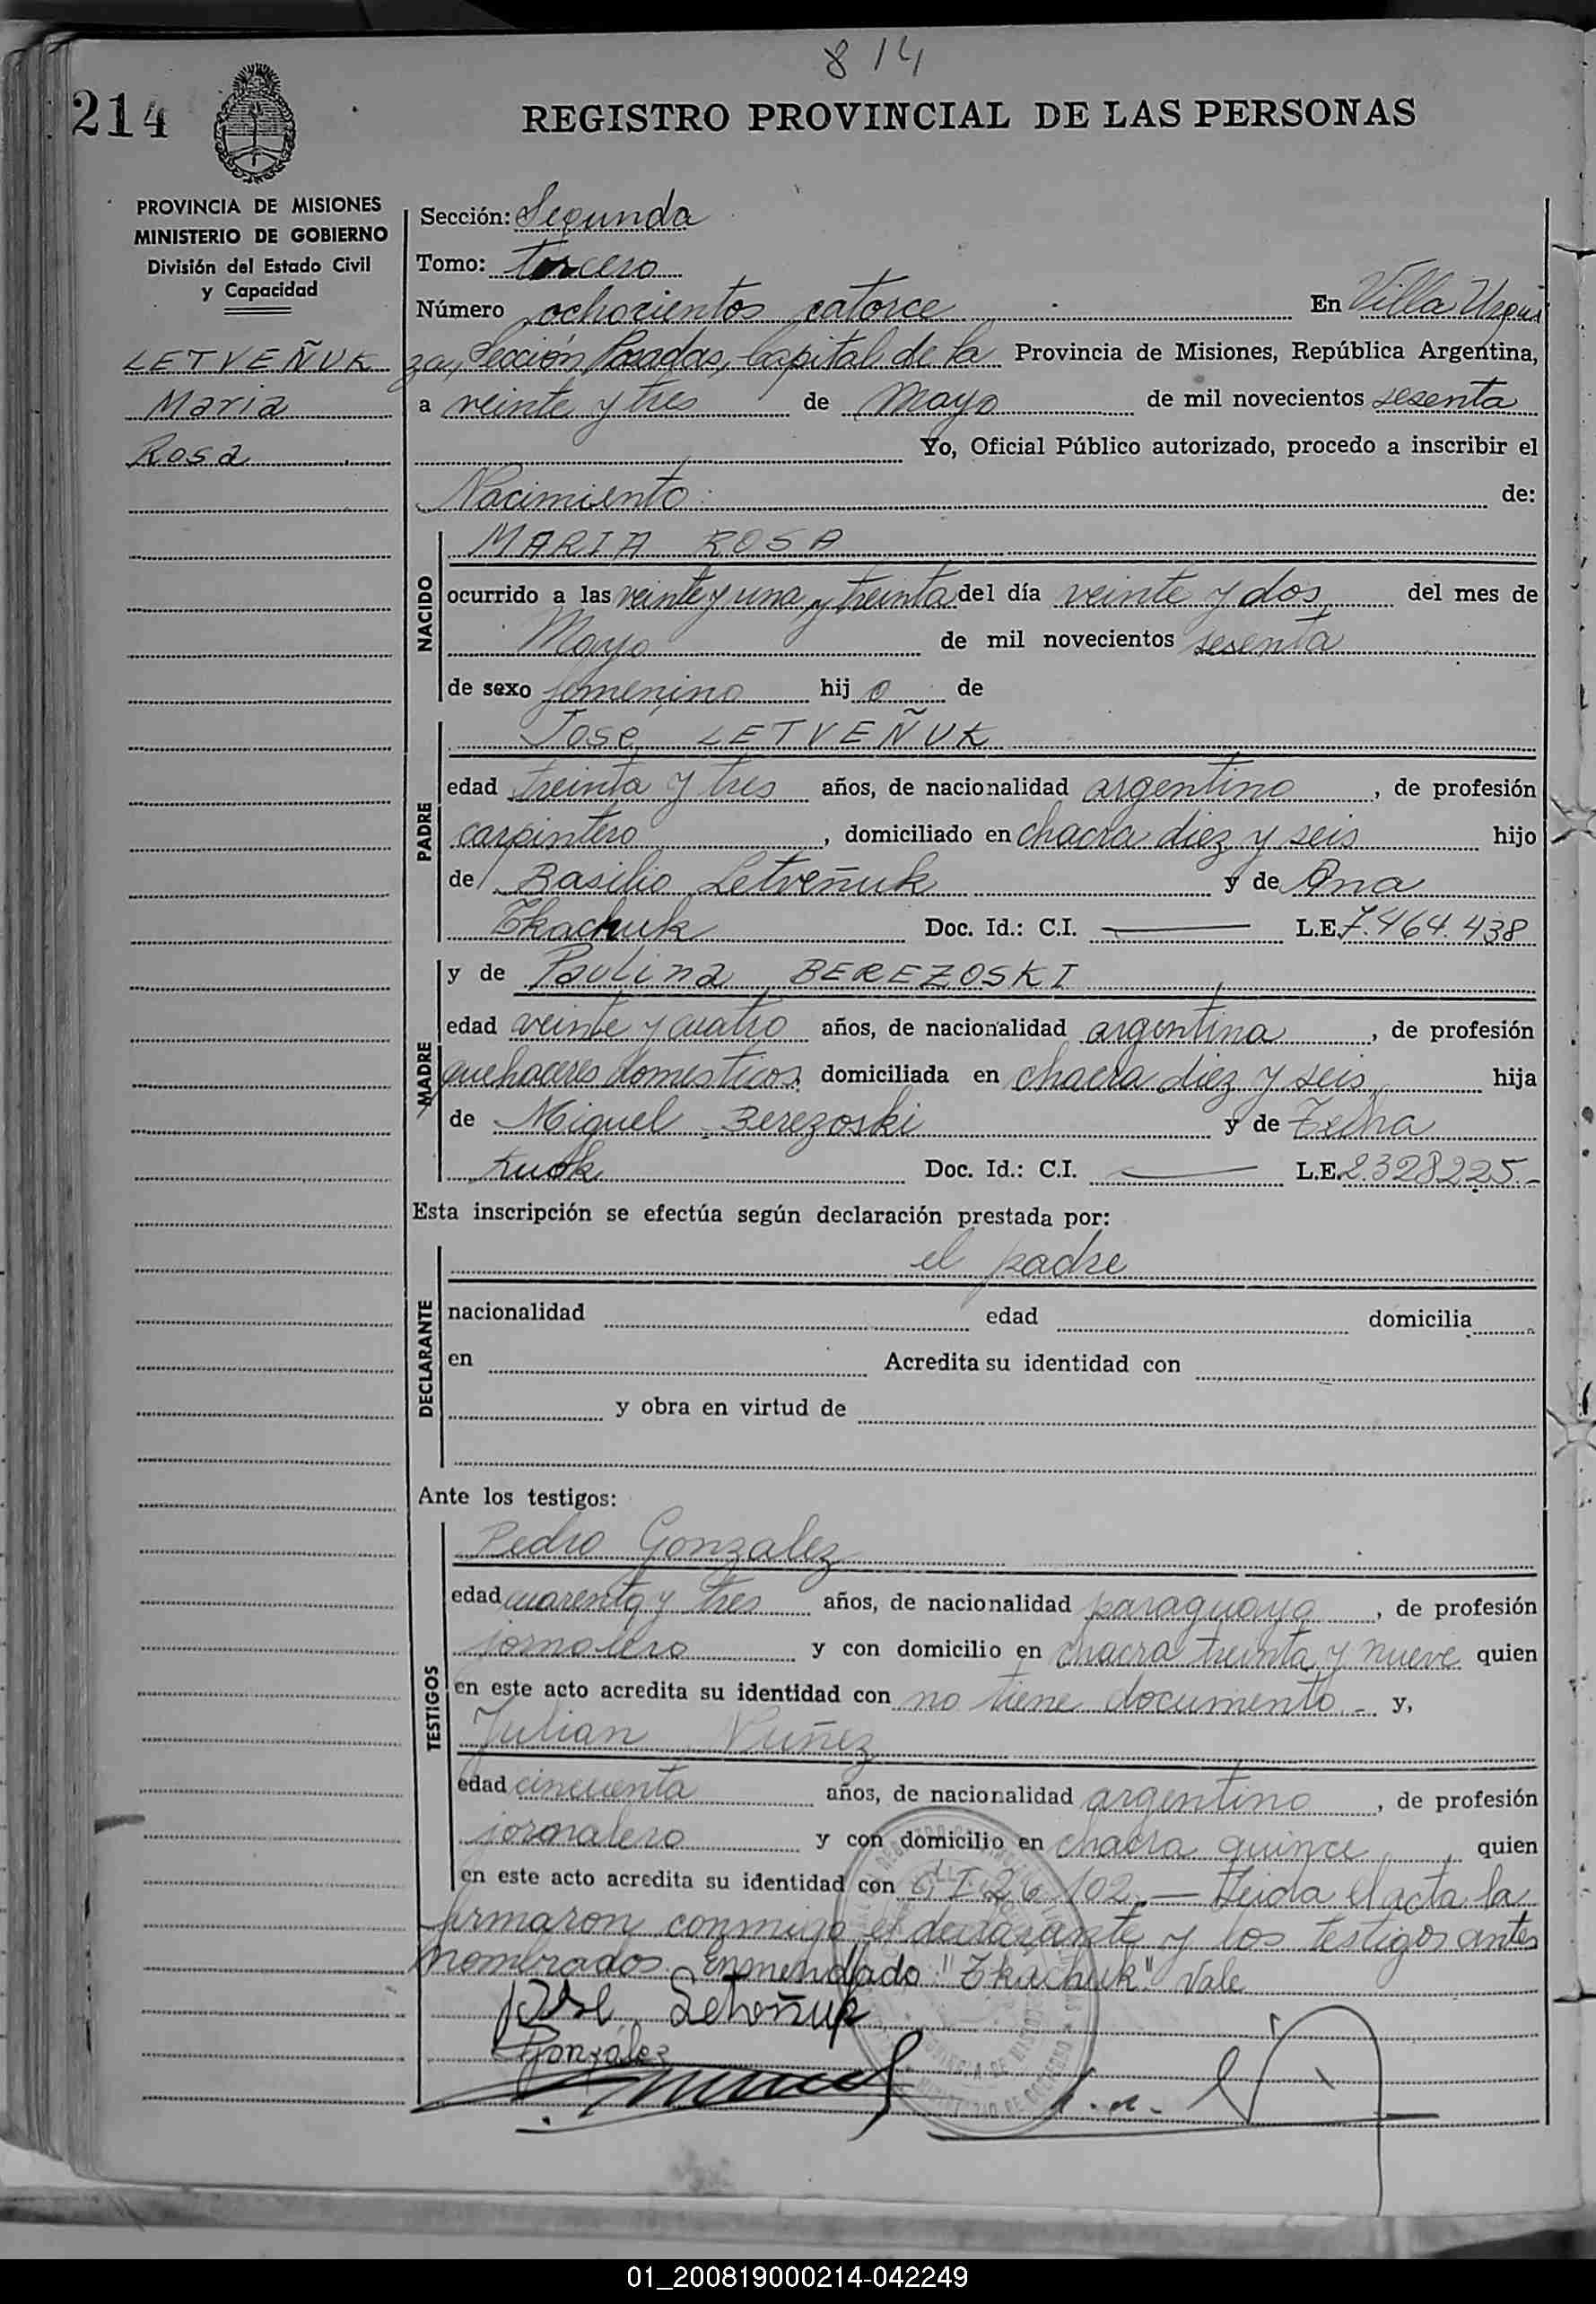 814
214
REGISTRO PROVINCIAL DE LAS PERSONAS
PROVINCIA DE MISIONES
MINISTERIO DE GOBIERNO
División del Estado Civil
y Capacidad
LETVEÑUK
Maria
Rosa
Sección: Segunda
Tomo: tercero
Número ochocientos catorce En Villa Urqui
za, Sección Posadas, Capital de la Provincia de Misiones, República Argentina,
a veinte y tres de Mayo de mil novecientos sesenta
Yo, Oficial Público autorizado, procedo a inscribir el
Nacimiento de:
NACIDO
MARIA ROSA
ocurrido a las veinte y una y treinta del día veinte y dos del mes de
Mayo de mil novecientos sesenta
de sexo femenino hij o de
PADRE
José LETVEÑUK
edad treinta y tres años, de nacionalidad argentino, de profesión
carpintero, domiciliado en chacra diez y seis hijo
de Basilio Letveñuk y de Ana
Tkachuk Doc. Id.: C.I. — L.E. 7.464.438
MADRE
y de Paulina BEREZOSKI
edad veinte y cuatro años, de nacionalidad argentina, de profesión
quehaceres domesticos, domiciliada en chacra diez y seis hija
de Miguel Berezoski y de
Doc. Id.: C.I. — L.E. 2.328.225.-
Esta inscripción se efectúa según declaración prestada por:
DECLARANTE
el padre
nacionalidad edad domicilia
en Acredita su identidad con
y obra en virtud de
Ante los testigos:
TESTIGOS
Pedro Gonzalez
edad cuarenta y tres años, de nacionalidad paraguayo, de profesión
jornalero y con domicilio en chacra treinta y nueve quien
en este acto acredita su identidad con no tiene documento.- y,
Julian Nuñez
edad cincuenta años, de nacionalidad argentino, de profesión
jornalero y con domicilio en chacra quince quien
en este acto acredita su identidad con C.I. 26.102.— Leida el acta la
firmaron conmigo el declarante y los testigos antes
nombrados. Enmendado "Tkachuk" Vale
José Letveñuk
González
01_200819000214-042249